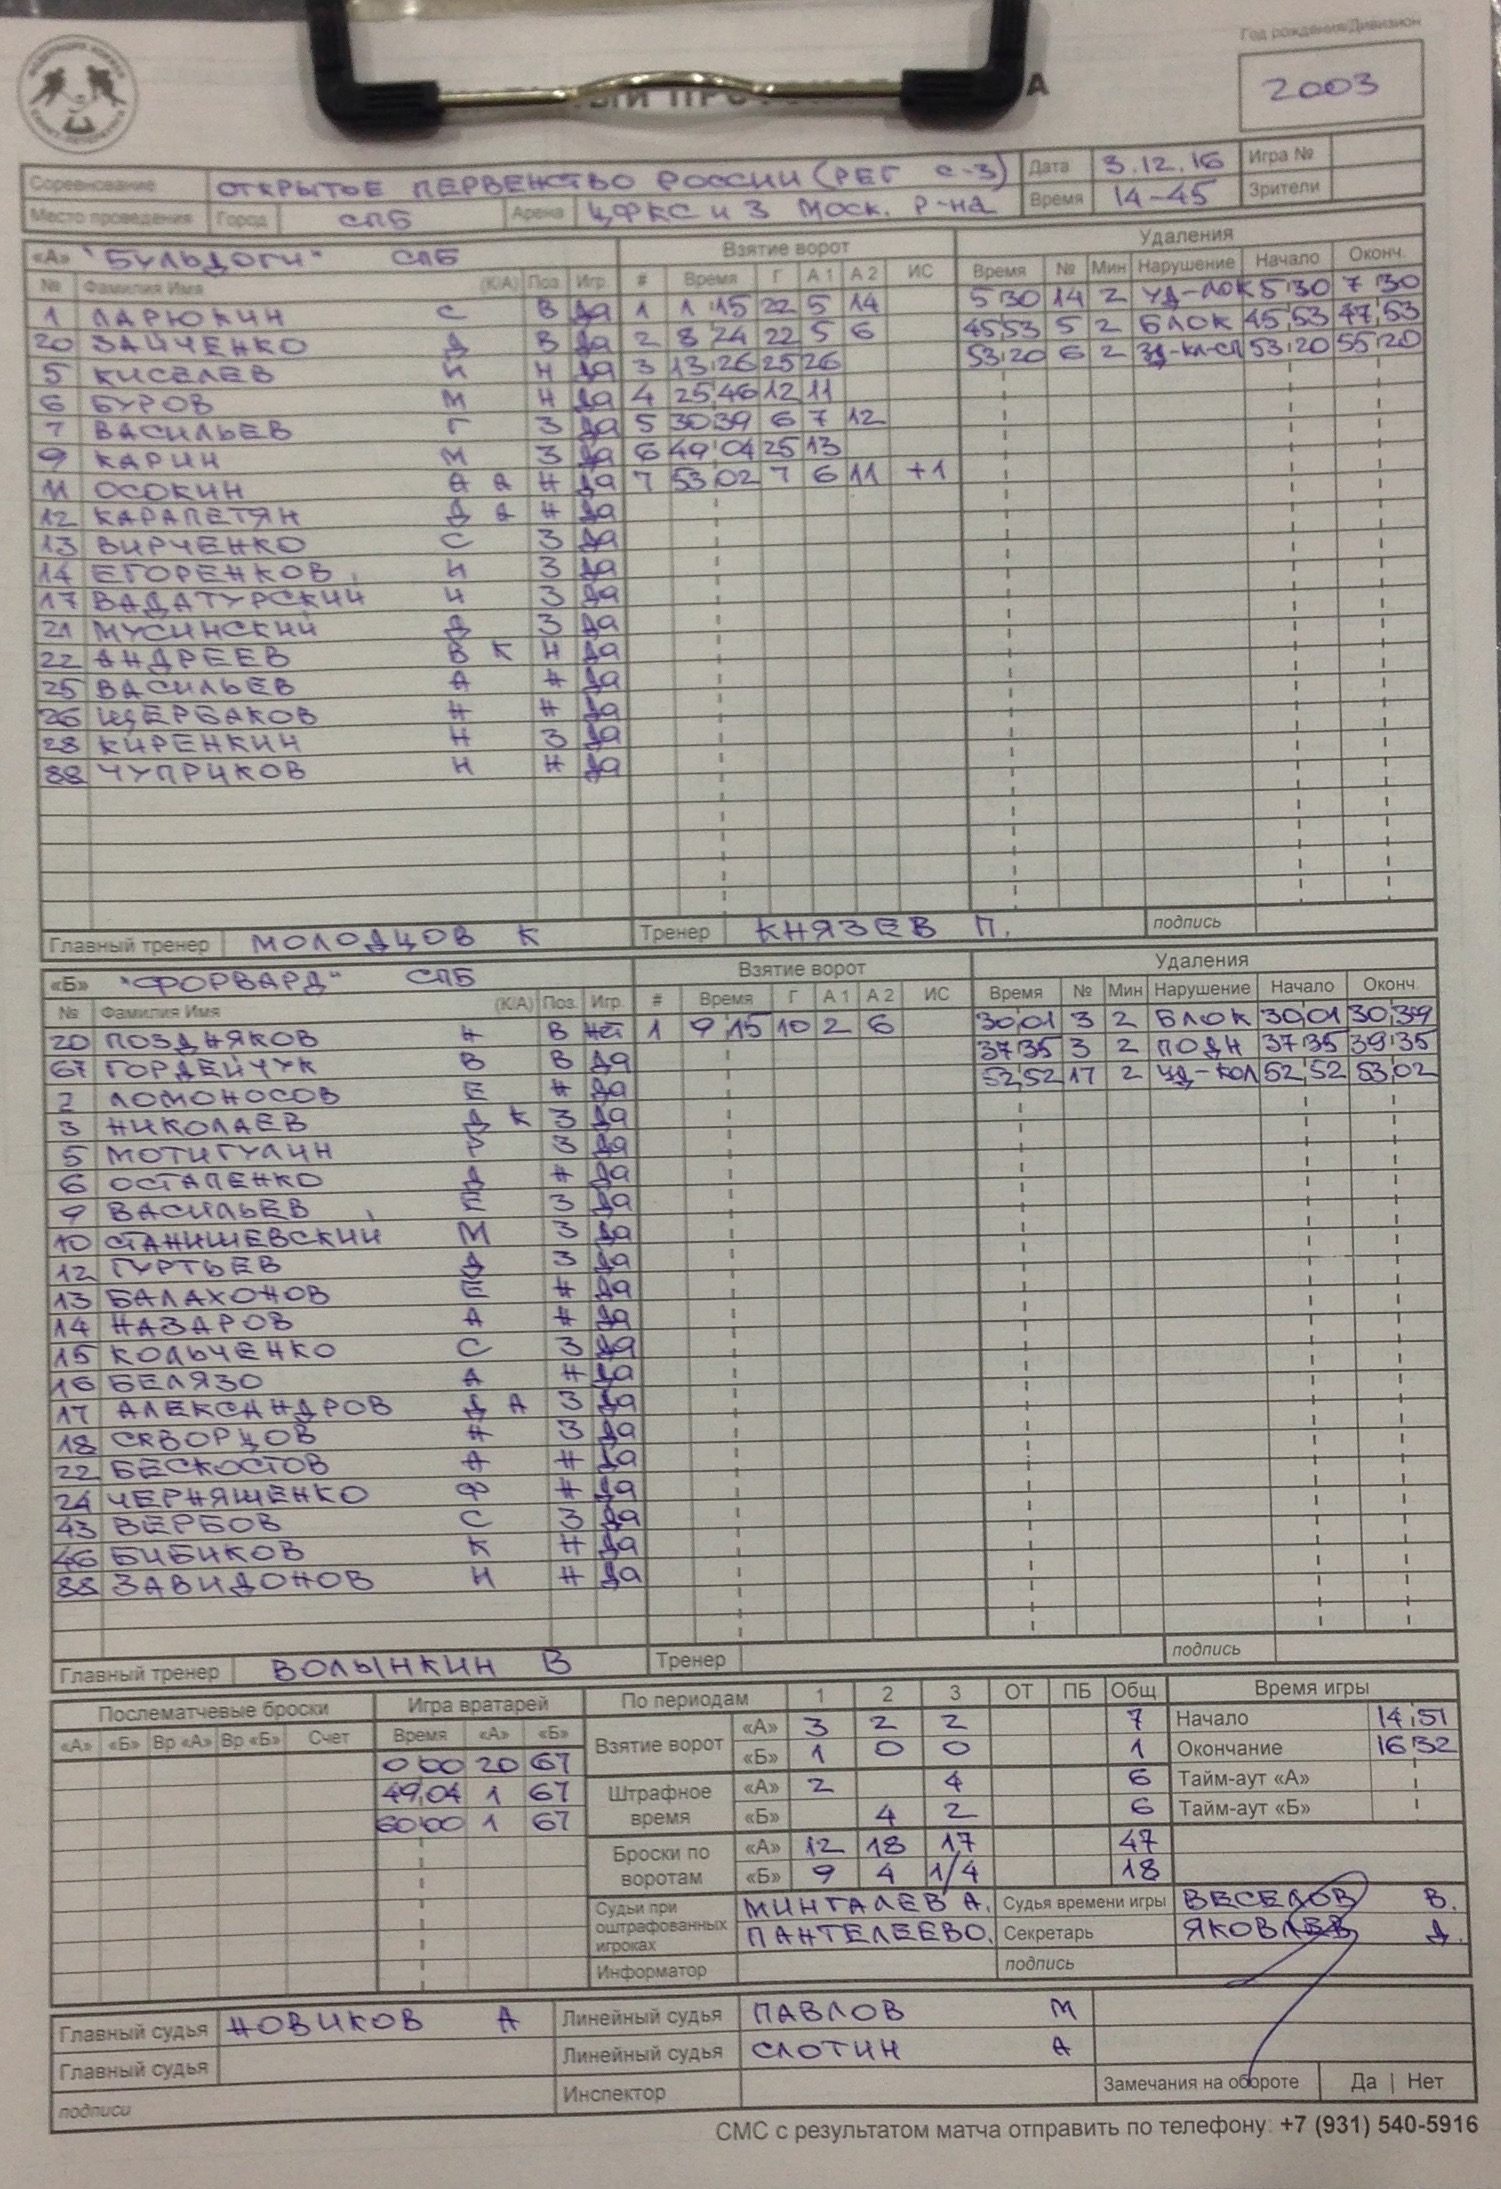 Год рождения/Дивизион
2003
Соревнование ОТКРЫТОЕ ПЕРВЕНСТВО РОССИИ (РЕГ С-З) Дата 3.12.16 Игра №
Место проведения Город СПБ Арена ЦФКС и З МОСК. Р-НА Время 14-45 Зрители
«А» "БУЛЬДОГИ" СПБ Взятие ворот Удаления
№ Фамилия Имя (К/А) Поз Игр. # Время Г А 1 А 2 ИС Время № Мин Нарушение Начало Оконч.
1 ЛАРЮКИН С В да 1 1 15 22 5 14 5 30 14 2 УД-ЛОК 5 30 7 30
20 ЗАЙЧЕНКО Д В да 2 8 24 22 5 6 45 53 5 2 БЛОК 45 53 47 53
5 КИСЕЛЕВ И Н да 3 13 26 25 26 53 20 6 2 ЗД-КЛ-СП 53 20 55 20
6 БУРОВ М Н да 4 25 46 12 11
7 ВАСИЛЬЕВ Г З да 5 30 39 6 7 12
9 КАРИН М З да 6 49 04 25 13
11 ОСОКИН А А Н да 7 53 02 7 6 11 +1
12 КАРАПЕТЯН Д А Н да
13 ВИРЧЕНКО С З да
14 ЕГОРЕНКОВ И З да
17 ВАДАТУРСКИЙ И З да
21 МУСИНСКИЙ Д З да
22 АНДРЕЕВ В К Н да
25 ВАСИЛЬЕВ А Н да
26 ЩЕРБАКОВ Н Н да
28 КИРЕНКИН Н З да
88 ЧУПРИКОВ Н Н да
Главный тренер МОЛОДЦОВ К Тренер КНЯЗЕВ П. подпись
«Б» "ФОРВАРД" СПБ Взятие ворот Удаления
№ Фамилия Имя (К/А) Поз. Игр. # Время Г А 1 А 2 ИС Время № Мин Нарушение Начало Оконч.
20 ПОЗДНЯКОВ Н В нет 1 9 15 10 2 6 30 01 3 2 БЛОК 30 01 30 39
67 ГОРДЕЙЧУК В В да 37 35 3 2 ПОДН 37 35 39 35
2 ЛОМОНОСОВ Е Н да 52 52 17 2 УД-КОЛ 52 52 53 02
3 НИКОЛАЕВ Д К З да
5 МОТИГУЛИН Р З да
6 ОСТАПЕНКО Д Н да
9 ВАСИЛЬЕВ Е З да
10 СТАНИШЕВСКИЙ М З да
12 ГУРТЬЕВ Д З да
13 БАЛАХОНОВ Е Н да
14 НАЗАРОВ А Н да
15 КОЛЬЧЕНКО С З да
16 БЕЛЯЗО А Н да
17 АЛЕКСАНДРОВ Д А З да
18 СКВОРЦОВ Н З да
22 БЕСКОСТОВ А Н да
24 ЧЕРНЯШЕНКО Ф Н да
43 ВЕРБОВ С З да
46 БИБИКОВ К Н да
88 ЗАВИДОНОВ Н Н да
Главный тренер ВОЛЫНКИН В Тренер подпись
Послематчевые броски Игра вратарей По периодам 1 2 3 ОТ ПБ Общ Время игры
«А» «Б» Вр «А» Вр «Б» Счет Время «А» «Б» Взятие ворот «А» 3 2 2 7 Начало 14 51
0 00 20 67 «Б» 1 0 0 1 Окончание 16 32
49 04 1 67 Штрафное время «А» 2 4 6 Тайм-аут «А»
60 00 1 67 «Б» 4 2 6 Тайм-аут «Б»
Броски по воротам «А» 12 18 17 47
«Б» 9 4 1/4 18
Судьи при оштрафованных игроках МИНГАЛЕВ А. Судья времени игры ВЕСЕЛОВ В.
ПАНТЕЛЕЕВ О. Секретарь ЯКОВЛЕВ Д.
Информатор подпись
Главный судья НОВИКОВ А Линейный судья ПАВЛОВ М
Главный судья Линейный судья СЛОТИН А
подписи Инспектор Замечания на обороте Да | Нет
СМС с результатом матча отправить по телефону: +7 (931) 540-5916